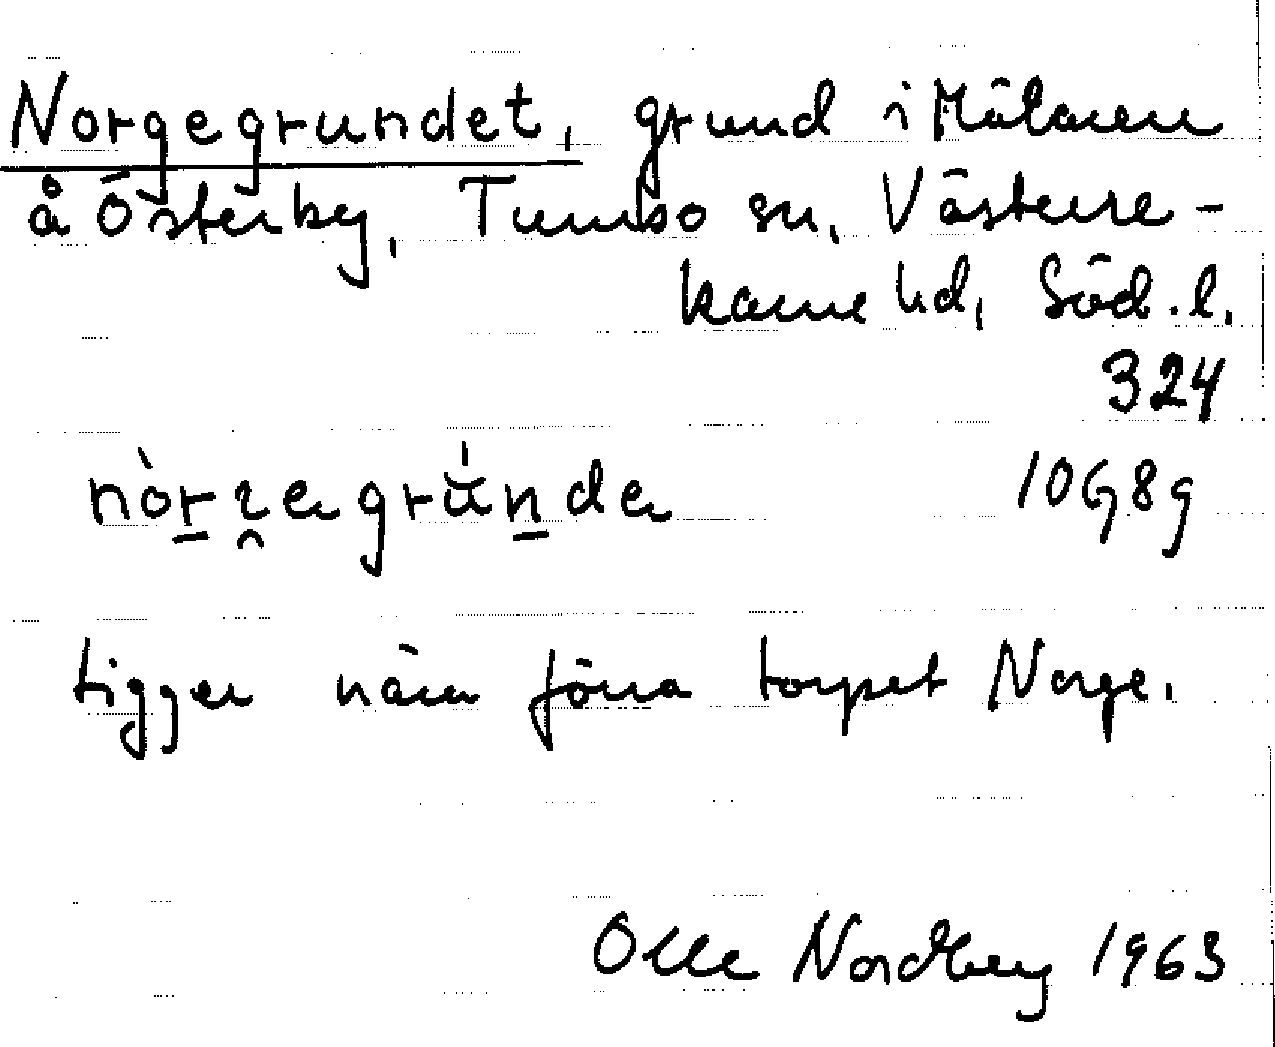 Norgegrundet, grund i Mälaren
å Österby, Tumbo sn, Västerre-
karne hd, Söd. l.
324
nòrʒegrúnde 10G8g
Ligger nära förra torpet Norge.
Olle Nordberg 1963